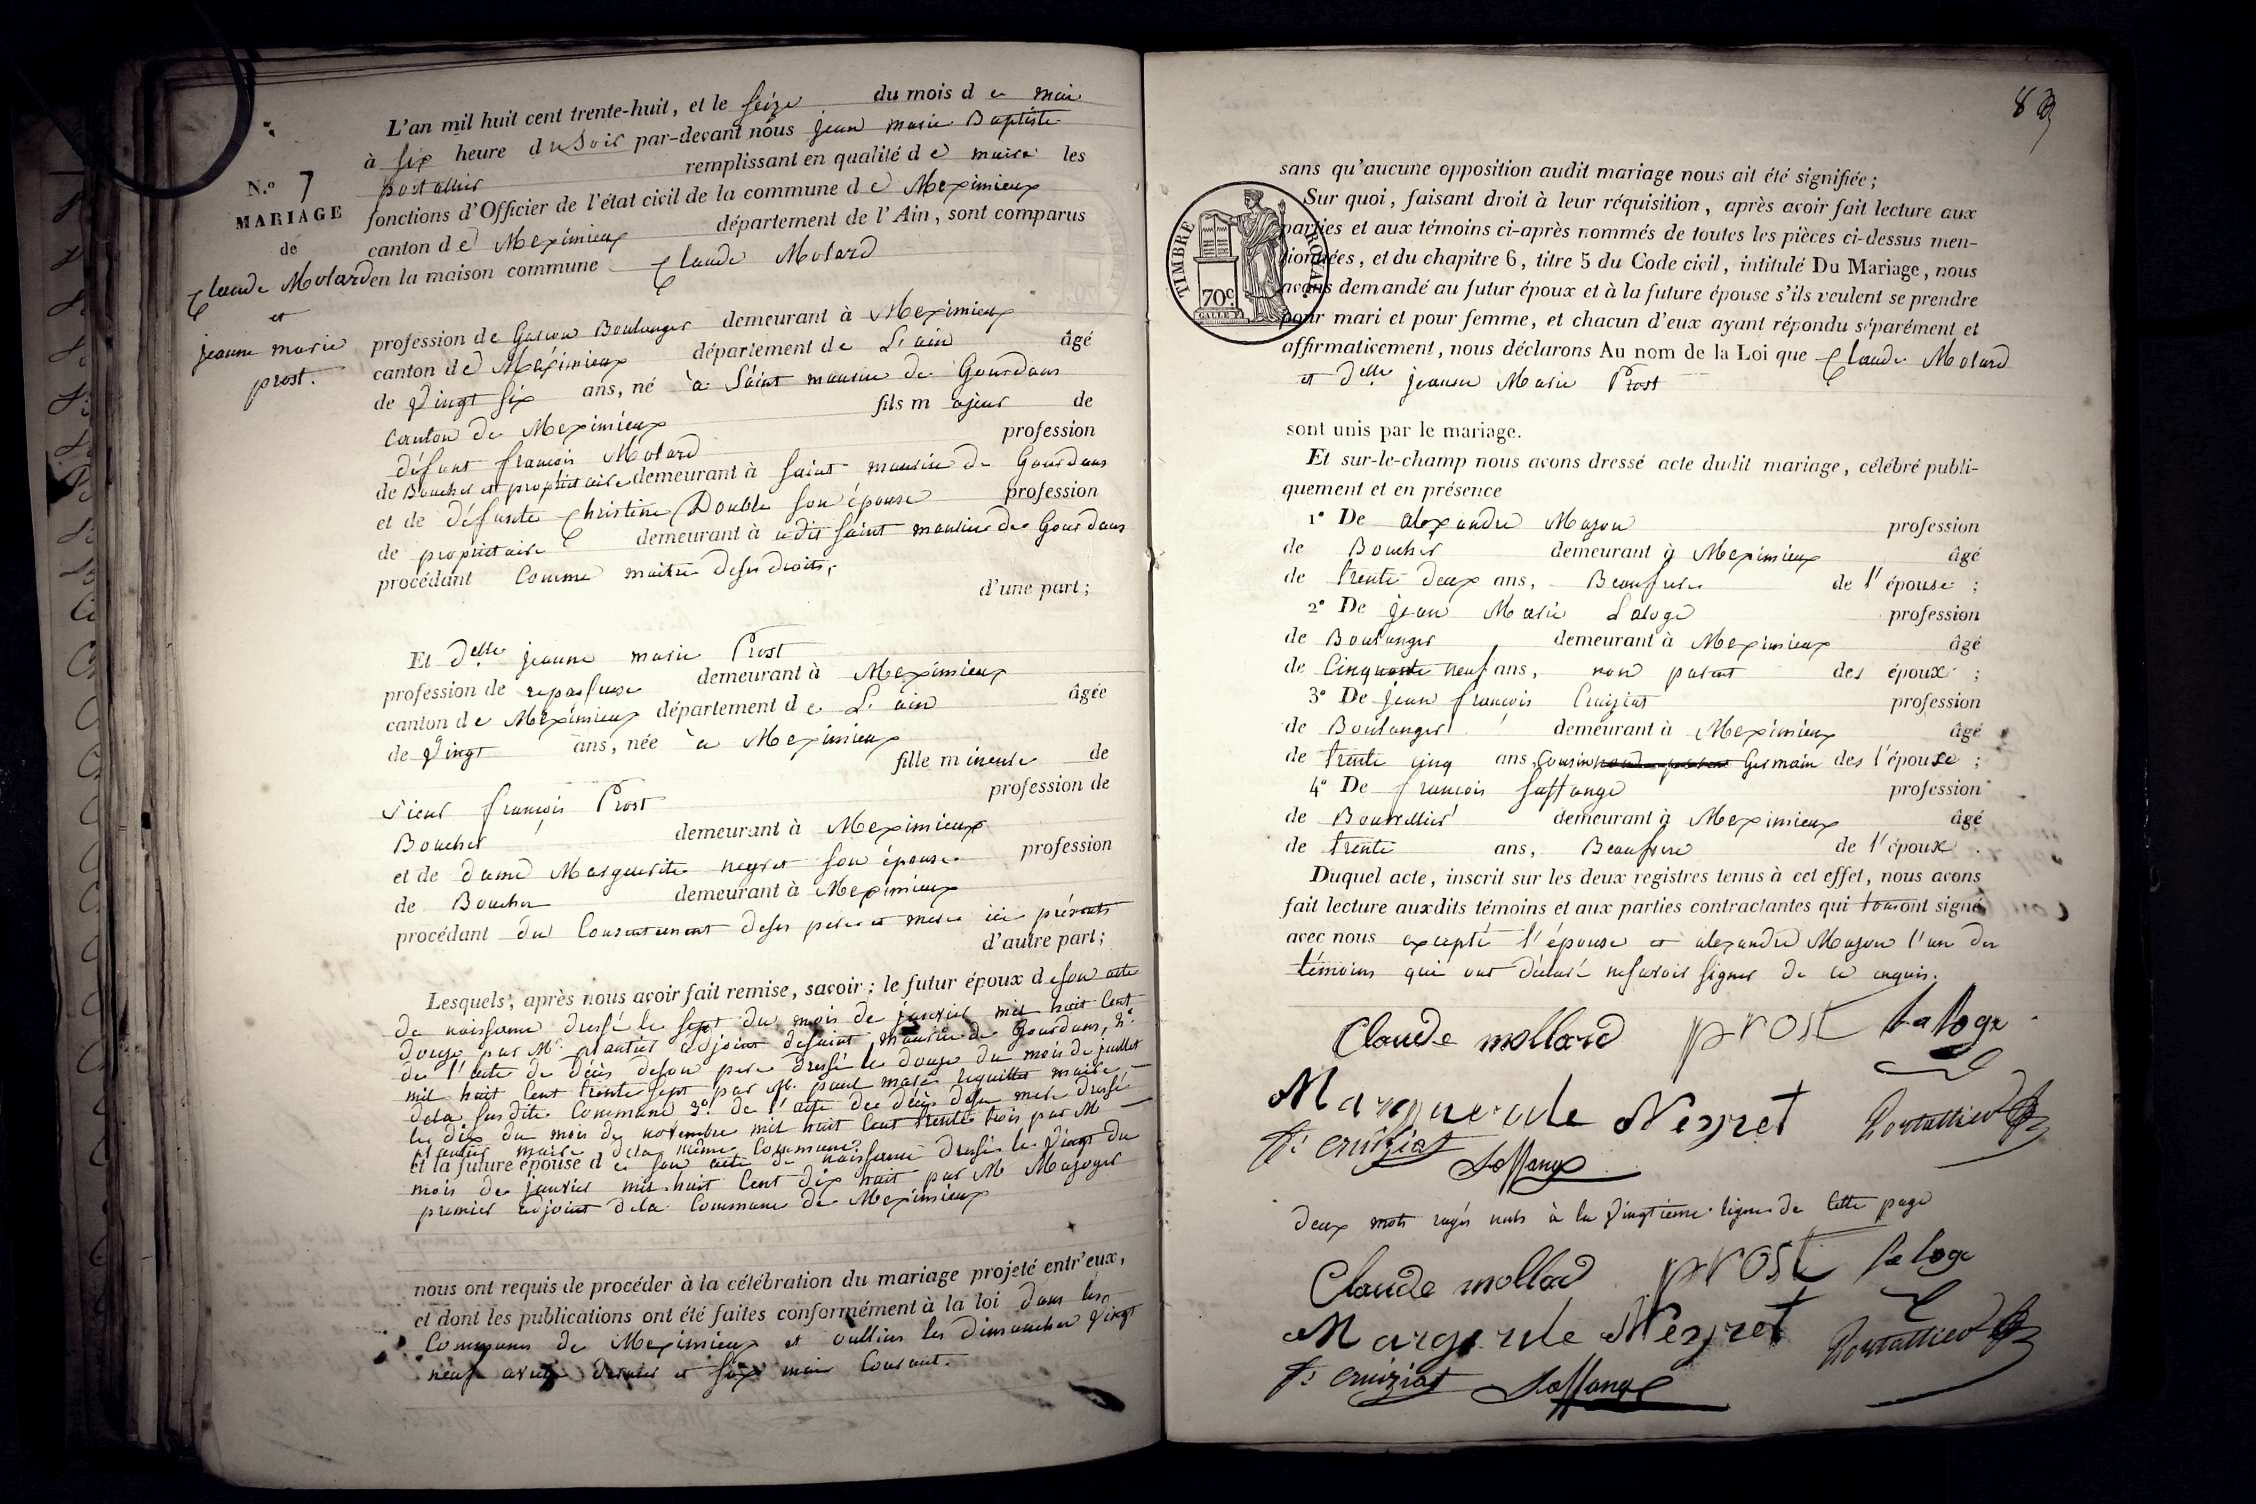 L'an mil huit cent trente-huit, et le seize du mois de mai
à six heure du soir par-devant nous jean marie Baptiste
portallier remplissant en qualité de maire les
fonctions d'Officier de l'état civil de la commune de Meximieux
canton de Meximieux département de l'Ain, sont comparus
en la maison commune Claude Molard
N.o 7
MARIAGE
de
Claude Molard
et
jeanne marie
prost.
profession de Garcon Boulanger demeurant à Meximieux
canton de Meximieux département de L'ain âgé
de Vingt six ans, né à Saint maurice de Gourdans
canton de Meximieux fils majeur de
défunt francois Molard profession
de Boucher et propriétaire demeurant à saint maurice de Gourdans
et de défunte Christine Double son épouse profession
de propriétaire demeurant à udit saint maurice de Gourdans
procédant comme maitre deses droits, d'une part;
Et Delle jeanne marie Prost
profession de repasseuse demeurant à Meximieux
canton de Meximieux département de L'ain âgée
de Vingt ans, née à Meximieux
fille mineure de
sieur françois Prost profession de
Boucher demeurant à Meximieux
et de dame Marguerite negret son épouse profession
de Boucher demeurant à Meximieux
procédant du Consentement deses pere et mere ici présents
d'autre part;
Lesquels, après nous avoir fait remise, savoir: le futur époux de son acte
de naissance dressé le sept du mois de janvier mil huit Cent
douze par Mr. plantier adjoint desaint Maurice de Gourdans, 2o.
de l'acte de Décès deson pere Dressé le douze du mois de juillet
mil huit Cent trente sept par M. paul marie maire
dela susdite Commune 3o. de l'acte de décès desa mere dressé
le dix du mois de novembre mil huit Cent trente trois par M
plantier maire dela même Commune
et la future épouse de son acte de naissance dressé le Vingt du
mois de janvier mil huit Cent dix huit par M Mazoyer
premier adjoint dela Commune de Meximieux
nous ont requis de procéder à la célébration du mariage projeté entr'eux,
et dont les publications ont été faites conformément à la loi dans les
Communes de Meximieux et oullins les Dimanches Vingt
neuf avril dernier et six mai Courant.
83
TIMBRE ROYAL
70c
sans qu'aucune opposition audit mariage nous ait été signifiée;
Sur quoi, faisant droit à leur réquisition, après avoir fait lecture aux
parties et aux témoins ci-après nommés de toutes les pièces ci-dessus men-
tionnées, et du chapitre 6, titre 5 du Code civil, intitulé Du Mariage, nous
avons demandé au futur époux et à la future épouse s'ils veulent se prendre
pour mari et pour femme, et chacun d'eux ayant répondu séparément et
affirmativement, nous déclarons Au nom de la Loi que Claude Molard
et Delle jeanne Marie Prost
sont unis par le mariage.
Et sur-le-champ nous avons dressé acte dudit mariage, célébré publi-
quement et en présence
1o De alexandre Mazon profession
de Boucher demeurant à Meximieux âgé
de trente deux ans, Beaufrere de l'épouse;
2o De jean Marie Laloge profession
de Boulanger demeurant à Meximieux âgé
de Cinquante neuf ans, non parent des époux;
3o De jean françois Cruiziat profession
de Boulanger demeurant à Meximieux âgé
de trente cinq ans, Cousin Germain des l'épouse;
4o De francois saffange profession
de Bourellier demeurant à Meximieux âgé
de trente ans, Beaufrere de l'époux.
Duquel acte, inscrit sur les deux registres tenus à cet effet, nous avons
fait lecture auxdits témoins et aux parties contractantes qui touront signé
avec nous excepté l'épouse et alexandre Mazon l'un des
témoins qui ont déclaré nesavoir signer de ce enquis.
Claude mollard prost Laloge
Marguerite Negret Portallier
f: cruiziat Saffange
Deux mots rayés nuls à la Vingtieme lignes de Cette page
Claude mollard prost laloge
Margerite Negret Portallier
f: cruiziat Saffange